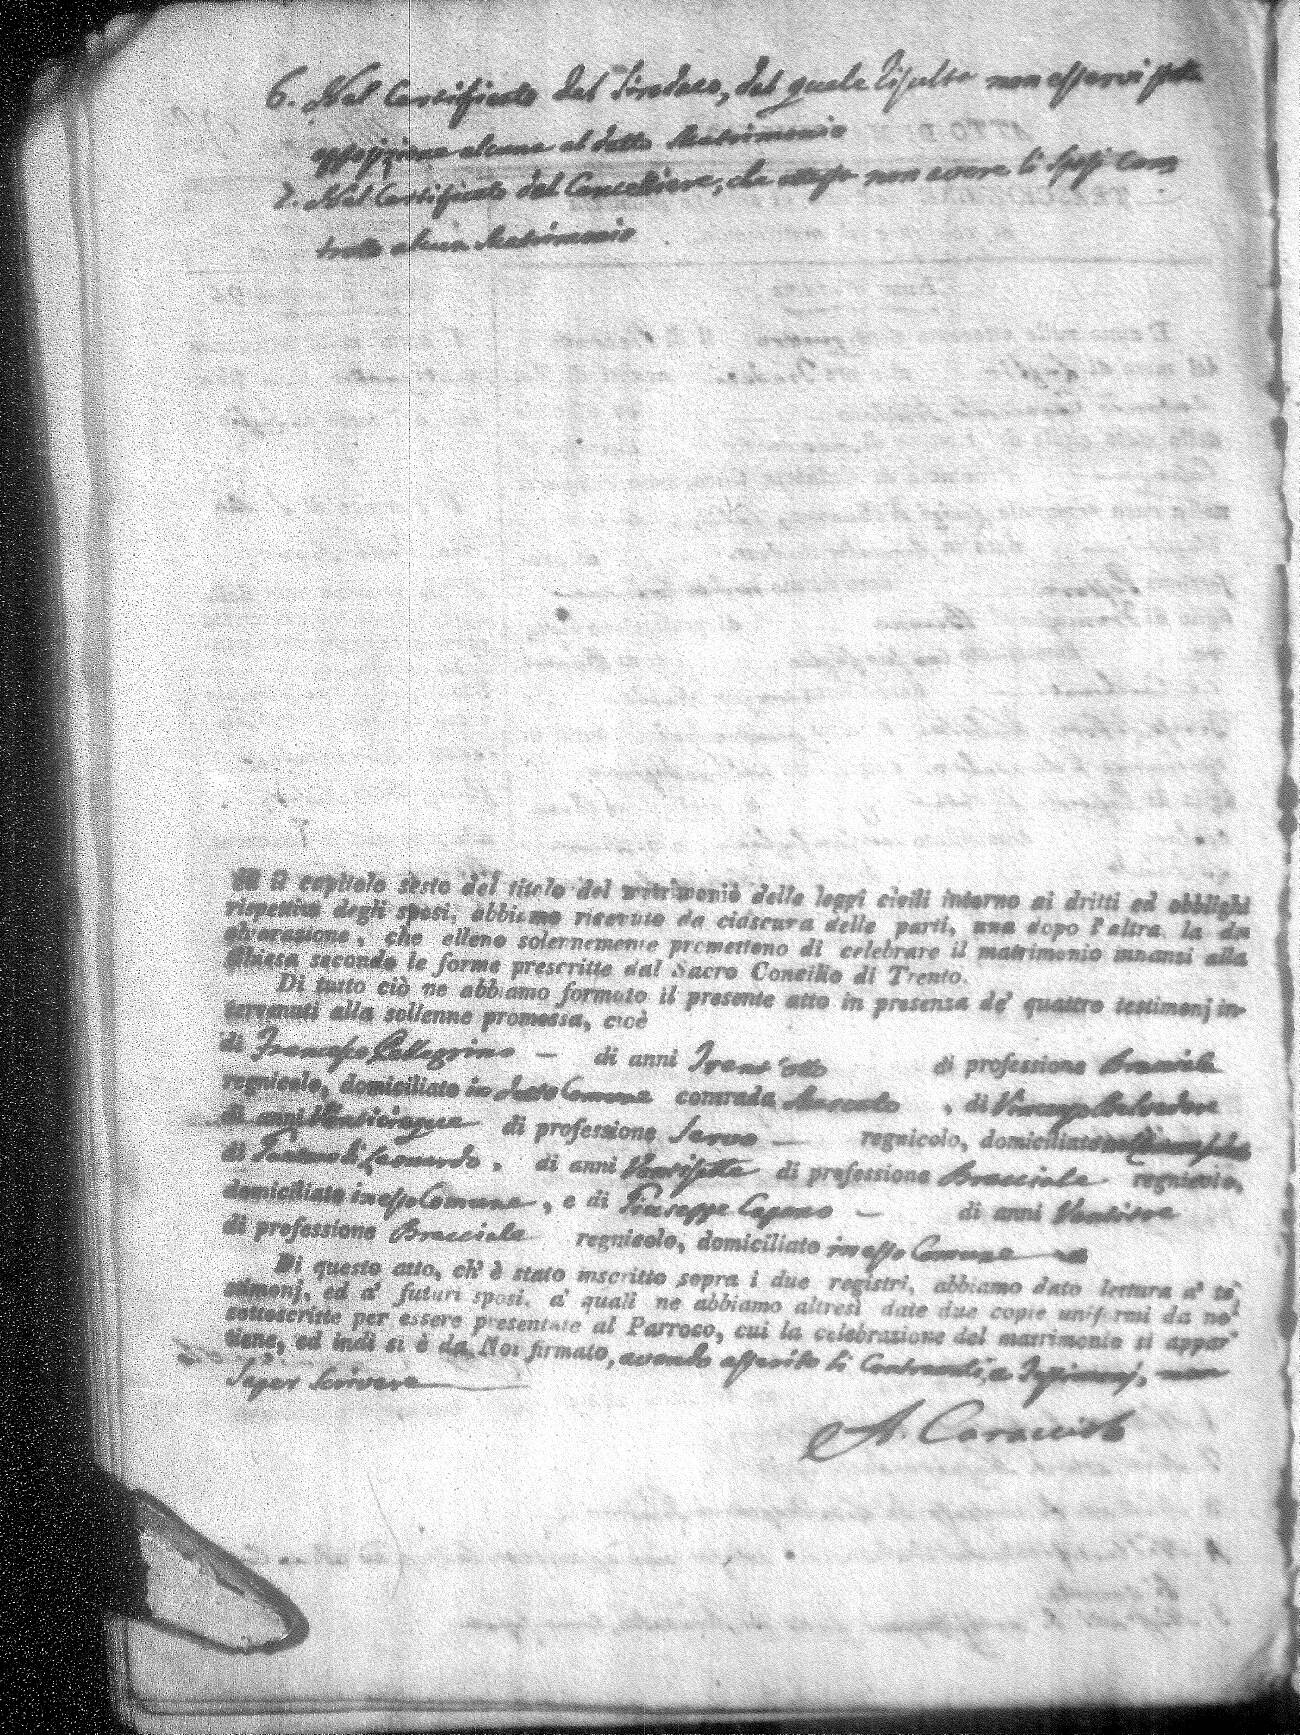 6. Nel Certificato del Sindaco, dal quale risulta non esservi stata
opposizione alcuna al detto Matrimonio
7. Nel Certificato del Cancelliere, che attesta non avere li sposi con
tratto alcun Matrimonio
il capitolo sesto del titolo del matrimonio delle leggi civili intorno ai dritti ed obblighi
rispettivi degli sposi, abbiamo ricevuto da ciascuna delle parti, una dopo l'altra, la di
chiarazione, che elleno solennemente promettono di celebrare il matrimonio innanzi alla
Chiesa secondo le forme prescritte dal Sacro Concilio di Trento.
Di tutto ciò ne abbiamo formato il presente atto in presenza de' quattro testimonj in-
tervenuti alla sollenne promessa, cioè
di Francesco Pellegrino — di anni Trent'otto di professione Bracciale
regnicolo, domiciliato in detto Comune contrada Mercato , di Vincenzo Belvedere
di anni Venticinque di professione Servo — regnicolo, domiciliato
di Leonardo , di anni Ventisette di professione Bracciale regnicolo,
domiciliato in esso Comune , e di Giuseppe Capano — di anni Ventitre
di professione Bracciale regnicolo, domiciliato in esso Comune
Di questo atto, ch'è stato inscritto sopra i due registri, abbiamo dato lettura a' te
stimonj, ed a' futuri sposi, a' quali ne abbiamo altresì date due copie uniformi da noi
sottoscritte per essere presentate al Parroco, cui la celebrazione del matrimonio si appar
tiene, ed indi si è da Noi firmato, avendo asserito li Contraenti, e Testimonj, non
saper scrivere
A. Caracciolo